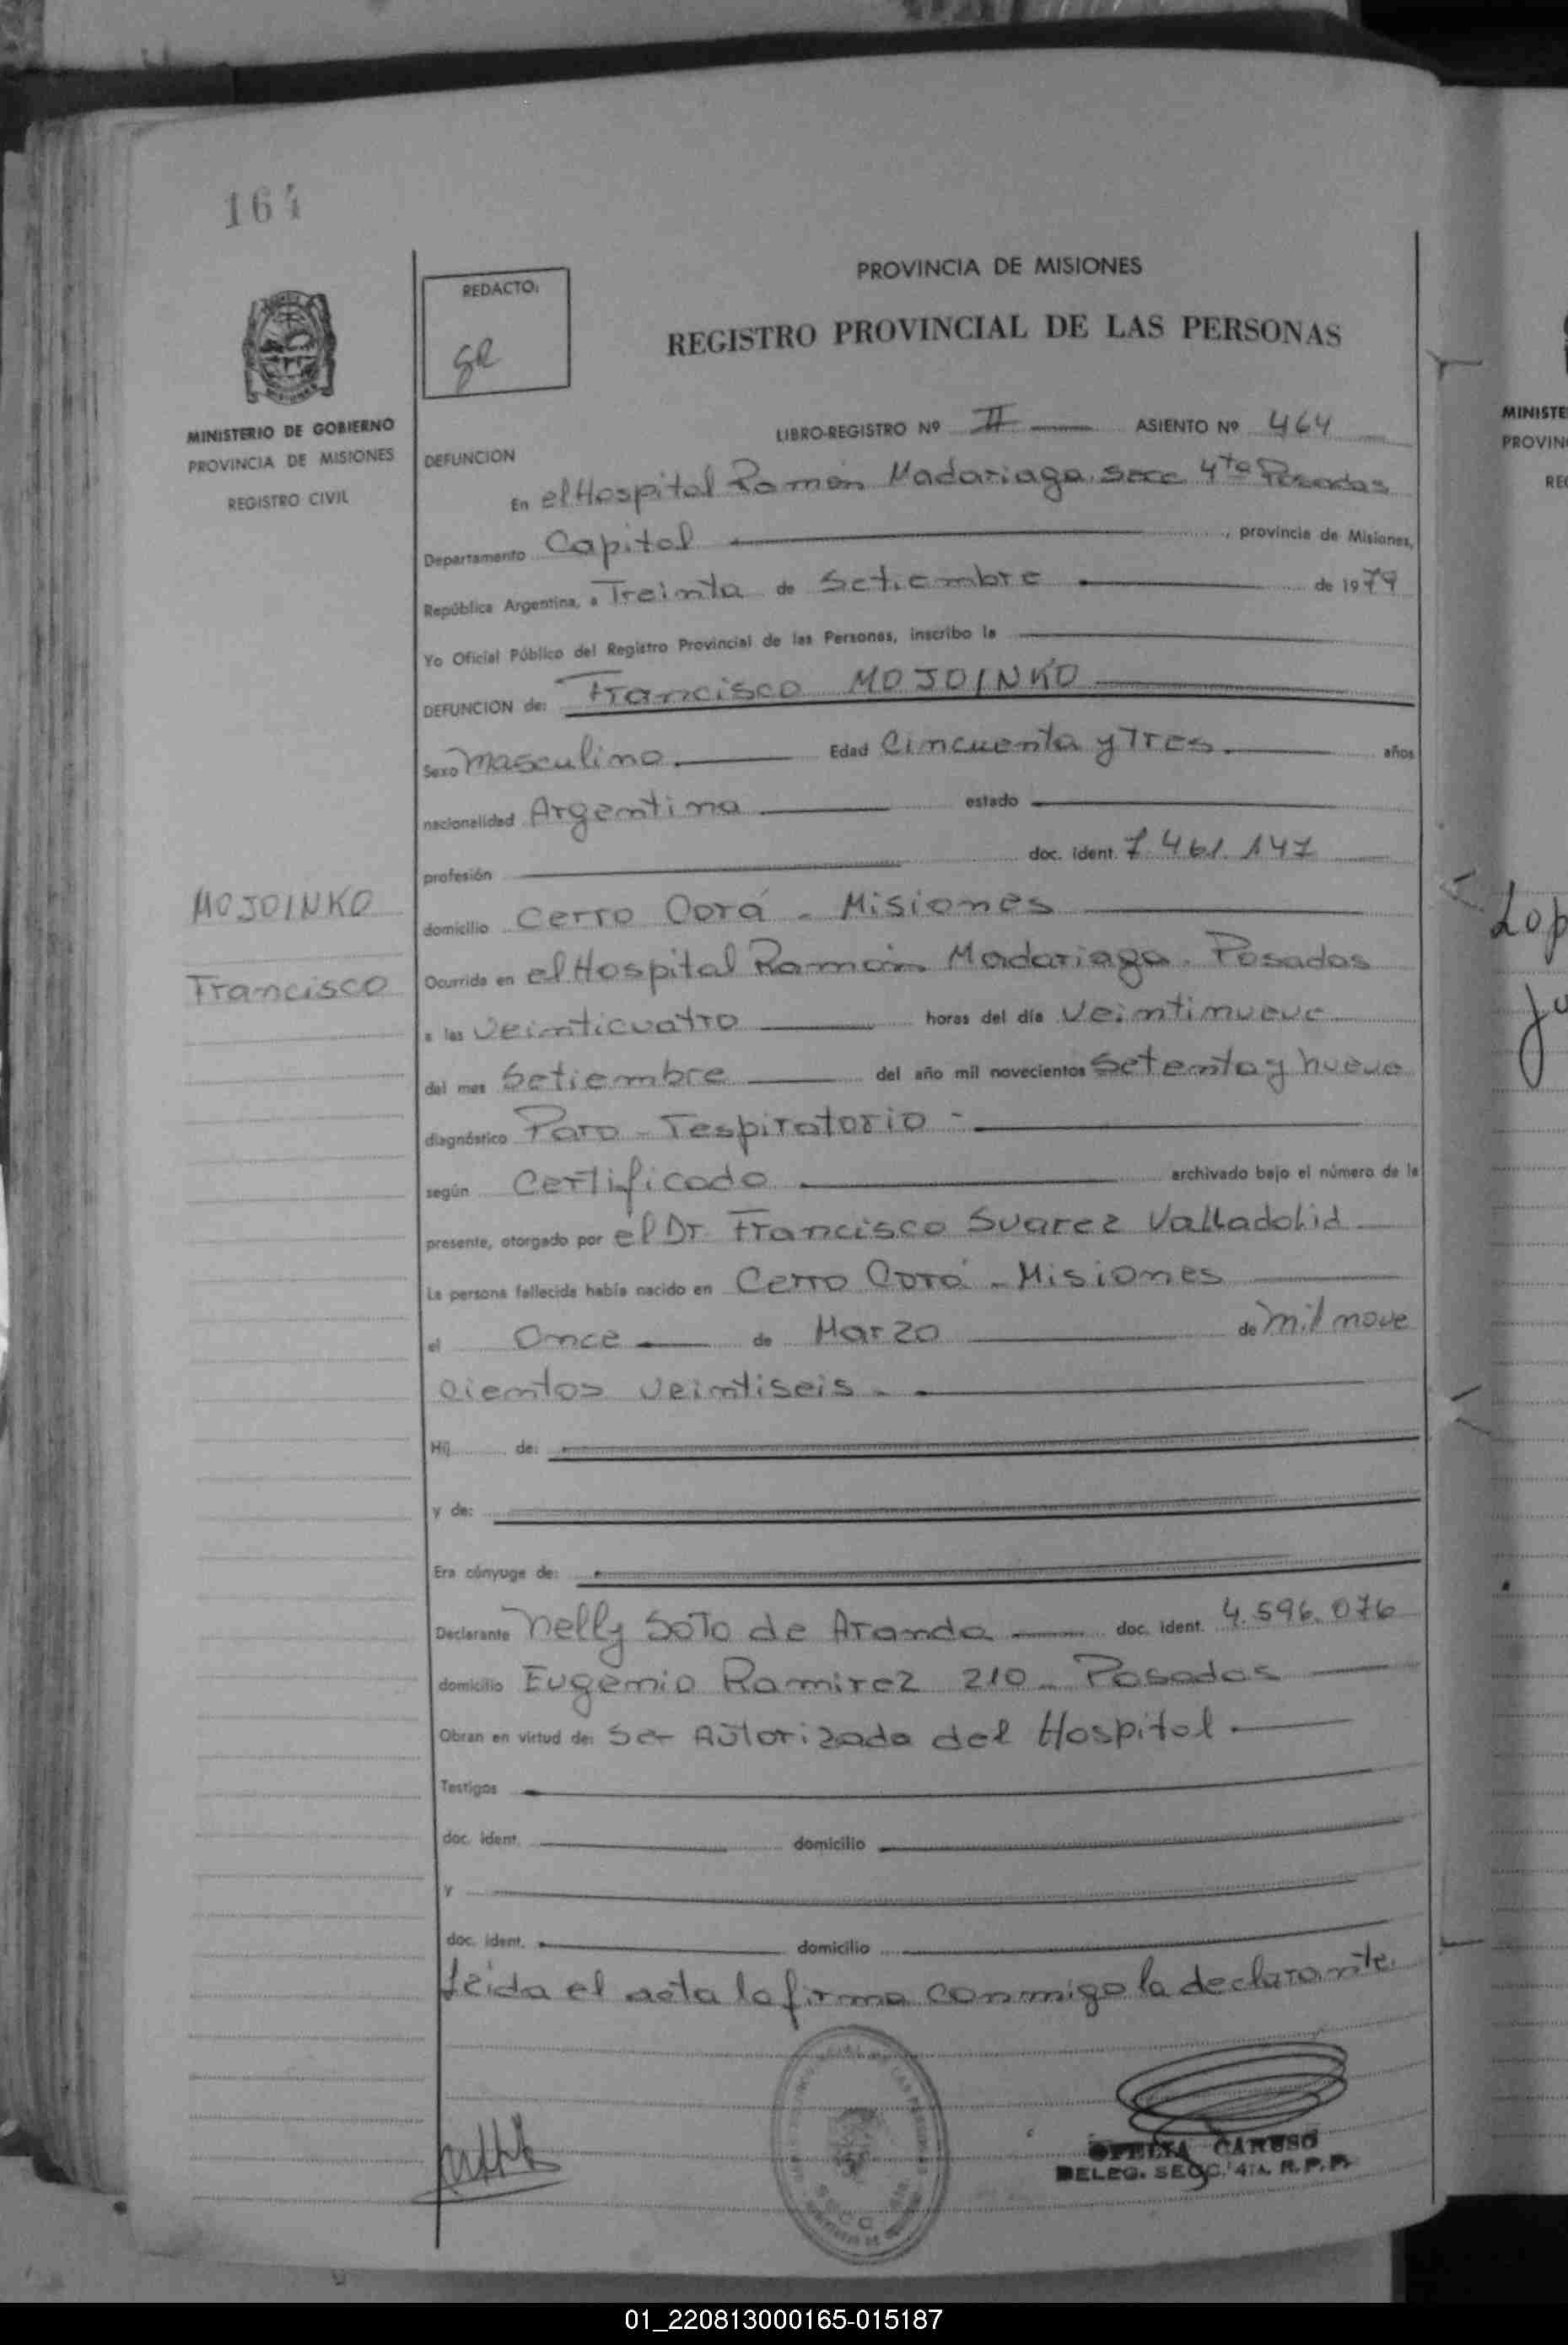 164
PROVINCIA DE MISIONES
REDACTO:
REGISTRO PROVINCIAL DE LAS PERSONAS
MINISTERIO DE GOBIERNO
PROVINCIA DE MISIONES
REGISTRO CIVIL
LIBRO-REGISTRO Nº II ASIENTO Nº 464
DEFUNCION
En el Hospital Ramón Madariaga. Secc 4ta Posadas
Departamento Capital, provincia de Misiones,
República Argentina, a Treinta de Setiembre de 1979
Yo Oficial Público del Registro Provincial de las Personas, inscribo la
DEFUNCION de: Francisco MOJOINKO
Sexo Masculino. Edad Cincuenta y Tres. años
nacionalidad Argentina estado
profesión doc. ident. 7.461.147
MOJOINKO
Francisco
domicilio Cerro Corá - Misiones
Ocurrida en el Hospital Ramón Madariaga. Posadas
a las Veinticuatro horas del día Veintinueve
del mes Setiembre del año mil novecientos Setenta y nueve
diagnóstico Paro - respiratorio -
según Certificado archivado bajo el número de la
presente, otorgado por el Dr. Francisco Suarez Valladolid
La persona fallecida había nacido en Cerro Corá - Misiones
el Once de Marzo de mil nove
cientos veintiseis.
Hij de:
y de:
Era cónyuge de:
Declarante Nelly Soto de Aranda doc. ident. 4.596.076
domicilio Eugenio Ramirez 210 - Posadas
Obran en virtud de: Ser Autorizada del Hospital.
Testigos
doc. ident. domicilio
y
doc. ident. domicilio
Leida el acta la firma conmigo la declarante.
OFELIA CARUSO
DELEG. SECC. 4ta. R.P.P.
MINISTE
PROVIN
RE
Lop
Ju
01_220813000165-015187